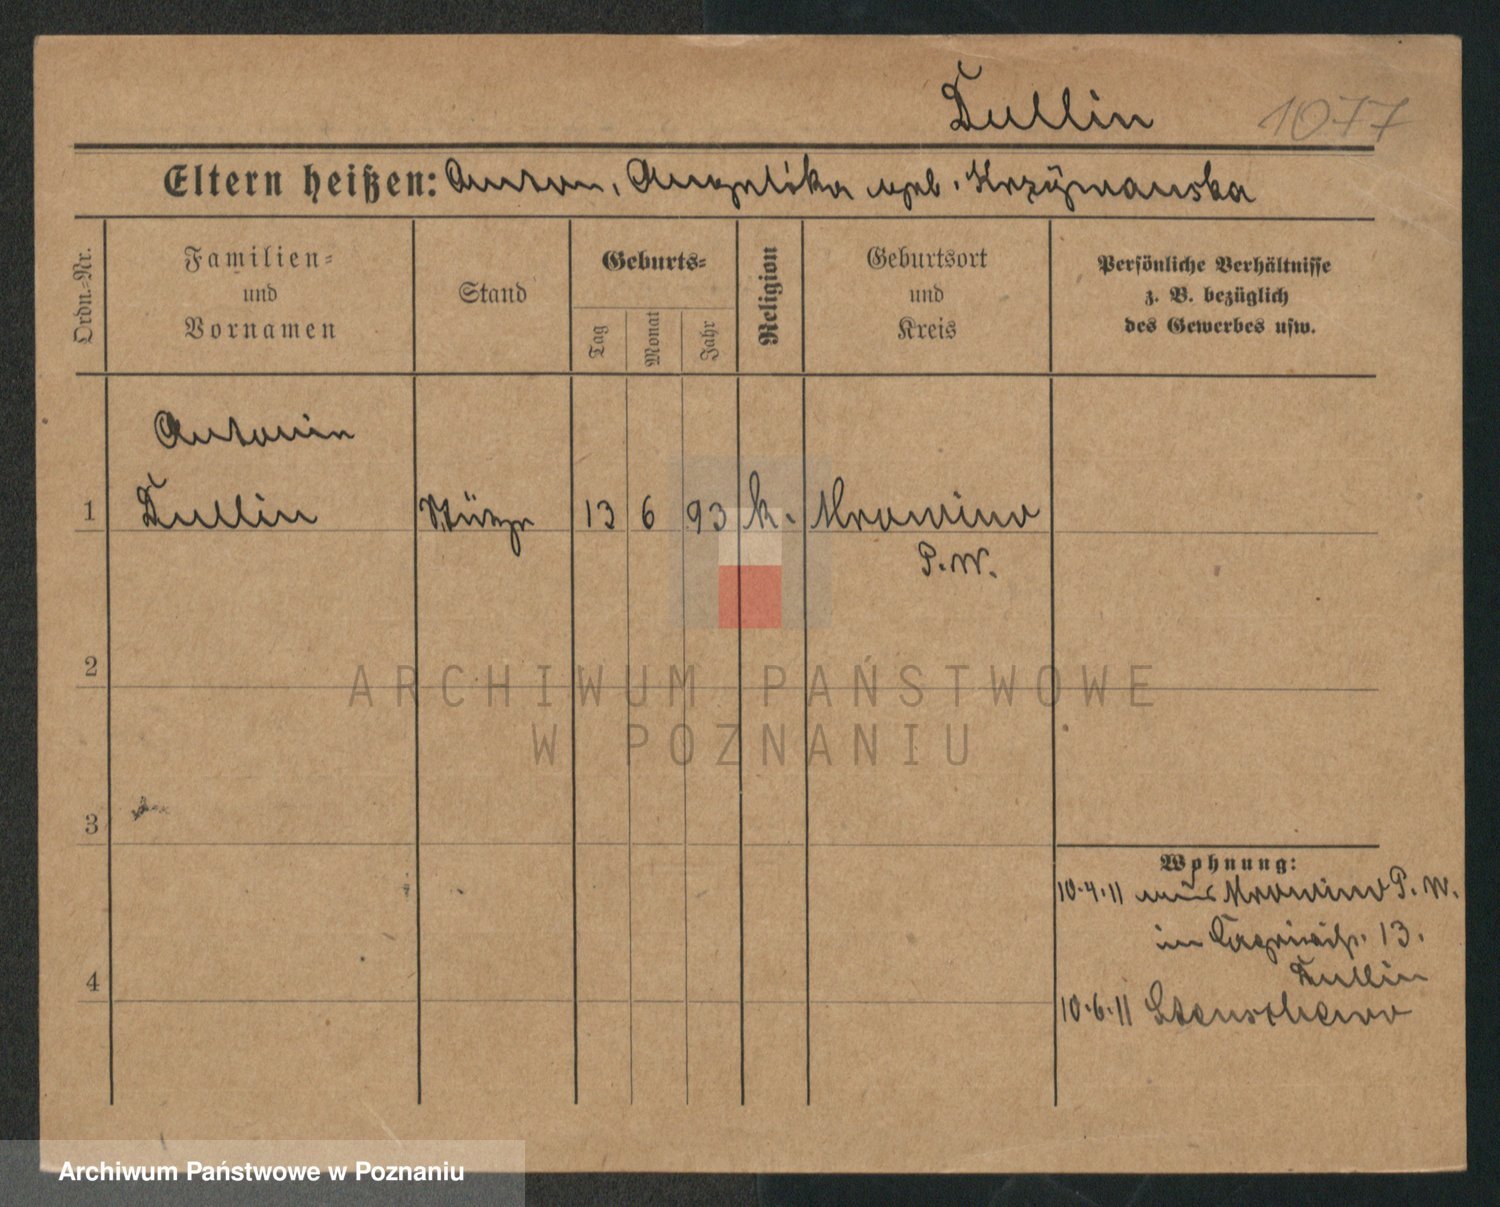 Tullin 1077
Eltern heißen: Anton, Angelika geb. Krzymanska
Ordn.-Nr.
Familien-
und
Vornamen
Stand
Geburts-
Tag
Monat
Jahr
Religion
Geburtsort
und
Kreis
Persönliche Verhältnisse
z. B. bezüglich
des Gewerbes usw.
Antonin
1 Tullin 13 6 93 k. Mrowino
P.W.
2
ARCHIWUM PAŃSTWOWE
W POZNANIU
3
Wohnung:
10.4.11 aus Mrowino P.W.
13.
Tullin
4
10.6.11 Stenschewo
Archiwum Państwowe w Poznaniu